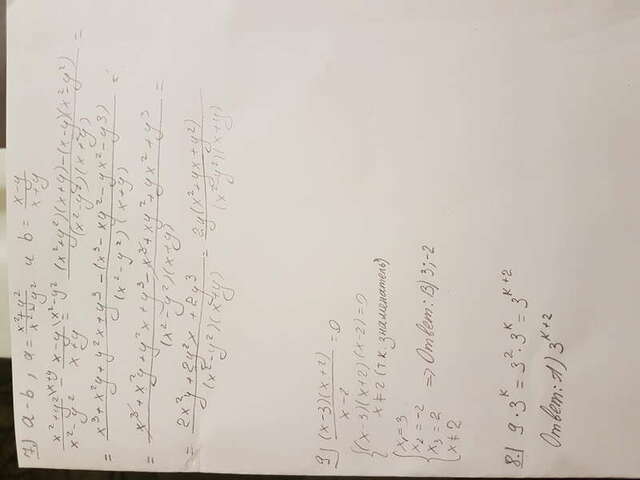 7) a-b, a = (x²+y²)/(x²-y²) и b = (x-y)/(x+y)
(x²+y²)/(x²-y²) \x+y - (x-y)/(x+y) \x²-y² = ((x²+y²)(x+y)-(x-y)(x²-y²))/((x²-y²)(x+y)) =
= (x³+x²y+y²x+y³-(x³-xy²-yx²-y³))/((x²-y²)(x+y)) =
= (x³+x²y+y²x+y³-x³+xy²+yx²+y³)/((x²-y²)(x+y)) =
= (2x²y+2y²x+2y³)/((x²-y²)(x+y)) = 2y(x²+yx+y²)/((x²-y²)(x+y))
9) (x-3)(x+2)/(x-2) = 0
{(x-3)(x+2)(x-2)=0
x≠2 (т.к. знаменатель)
{x₁=3
x₂=-2
x₃=2 ⇒ Ответ: В) 3;-2
x≠2
8.) 9·3ᵏ = 3²·3ᵏ = 3ᵏ⁺²
Ответ: А) 3ᵏ⁺²